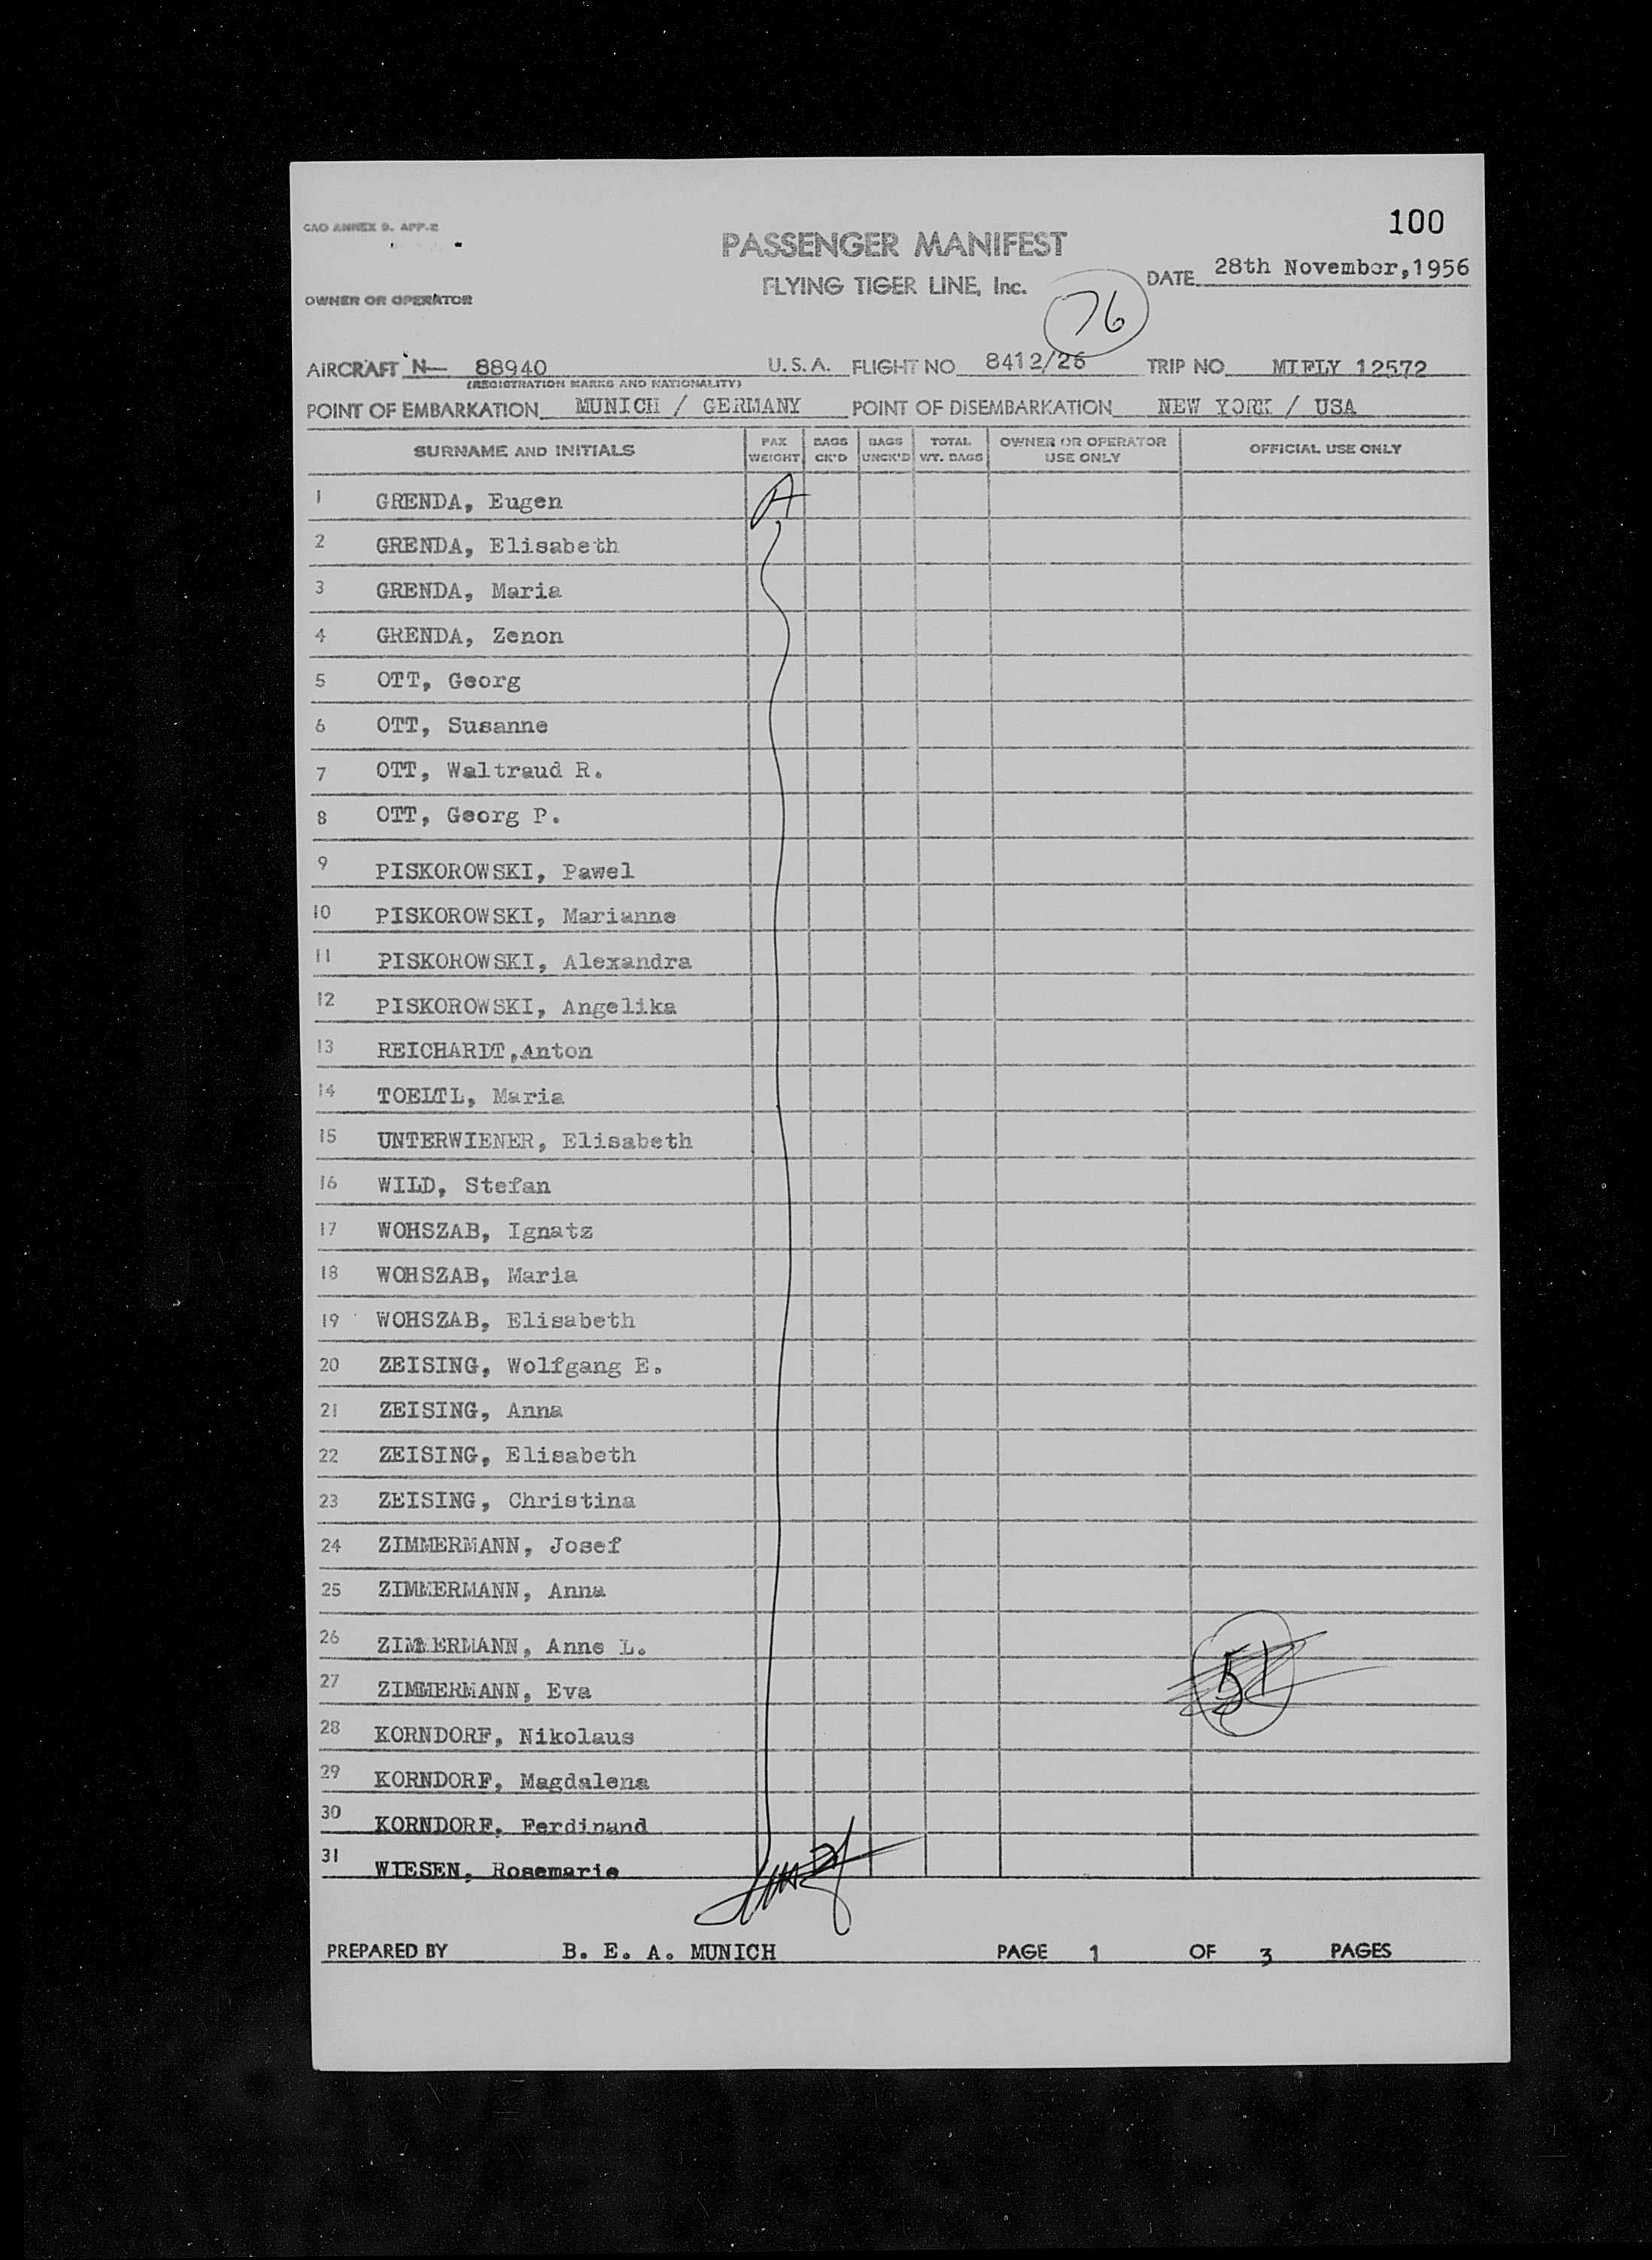 100
CAO ANNEX 9. APP.2
PASSENGER MANIFEST
FLYING TIGER LINE, Inc.
DATE 28th November,1956
OWNER OR OPERATOR
76
AIRCRAFT N— 88940 U.S.A. FLIGHT NO 8412/26 TRIP NO MIFLY 12572
(REGISTRATION MARKS AND NATIONALITY)
POINT OF EMBARKATION MUNICH / GERMANY POINT OF DISEMBARKATION NEW YORK / USA
SURNAME AND INITIALS PAX WEIGHT BAGS CK'D BAGS UNCK'D TOTAL WT. BAGS OWNER OR OPERATOR USE ONLY OFFICIAL USE ONLY
1 GRENDA, Eugen A
2 GRENDA, Elisabeth
3 GRENDA, Maria
4 GRENDA, Zenon
5 OTT, Georg
6 OTT, Susanne
7 OTT, Waltraud R.
8 OTT, Georg P.
9 PISKOROWSKI, Pawel
10 PISKOROWSKI, Marianne
11 PISKOROWSKI, Alexandra
12 PISKOROWSKI, Angelika
13 REICHARDT,Anton
14 TOELTL, Maria
15 UNTERWIENER, Elisabeth
16 WILD, Stefan
17 WOHSZAB, Ignatz
18 WOHSZAB, Maria
19 WOHSZAB, Elisabeth
20 ZEISING, Wolfgang E.
21 ZEISING, Anna
22 ZEISING, Elisabeth
23 ZEISING, Christina
24 ZIMMERMANN, Josef
25 ZIMMERMANN, Anna
26 ZIMMERMANN, Anne L.
27 ZIMMERMANN, Eva 51
28 KORNDORF, Nikolaus
29 KORNDORF, Magdalena
30 KORNDORF, Ferdinand
31 WIESEN, Rosemarie
PREPARED BY B. E. A. MUNICH PAGE 1 OF 3 PAGES